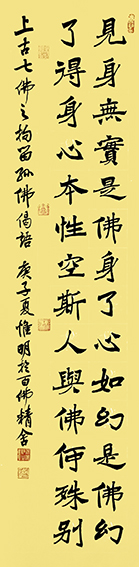 見身無實是佛身了心如幻是佛幻
了得身心本性空斯人與佛何殊别
上古七佛之拘留孫佛偈語 庚子夏惟明於百佛精舍